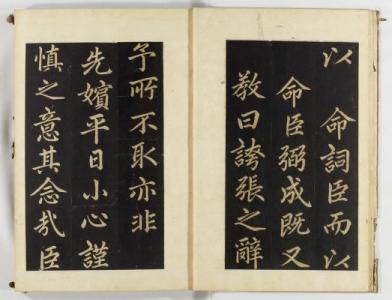 以 命詞臣而以
命臣弼成既又
教曰誇張之辭
予所不取亦非
先嬪平日小心謹
慎之意其念哉臣